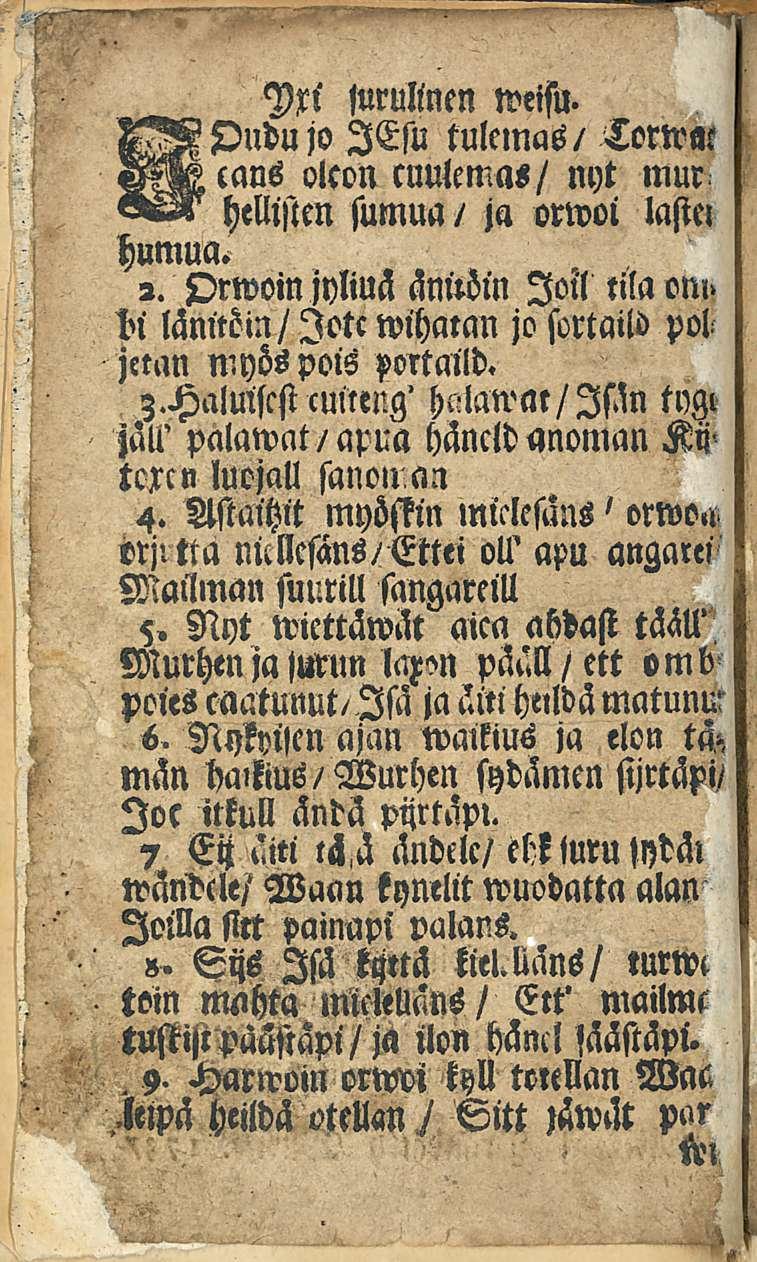 Yxi surulinen weisu.
JOudu jo JEsu tulemas / Corwat
cans olcon cuulemas / nyt mur
hellisten sumua / ja orwoi lasten
humua.
2. Orwoin jyliuä änitöin Joil' tila om
bi länitöin / Jote wihatan jo sortaild pol
jetan myös pois portaild.
3. Haluisest cuiteng' halawat / Isän tyge
jäll' palawat / apua häneld anoman Kij
toxen luojall sanoman
4. Astaitzit myöskin mielesäns / orwon
orjutta niellesäns / Ettei oll' apu angarei
Mailman suurill sangareill
5. Nyt wiettäwät aica ahdast tääll'
Murhen ja surun laxon pääll / ett omb
poies caatunut / Isä ja äiti heildä matunut
6. Nykyisen ajan waikius ja elon tä-
män haikius / Wurhen sydämen sijrtäpi /
Joc itkull ändä pijrtäpi.
7 Eij äiti täsä ändele / ehk suru sydän
wändele / Waan kynelit wuodatta alans
Joilla sitt painapi palans.
8. Sijs Isä kyttä kieleläns / turwa
toin mahta mieleläns / Ett' mailma
tuskist päästäpi / ja ilon hänel säästäpi.
9. Harwoin orwoi kyll totellan Waa
leipä heildä otellan / Sitt jäwät par
wi